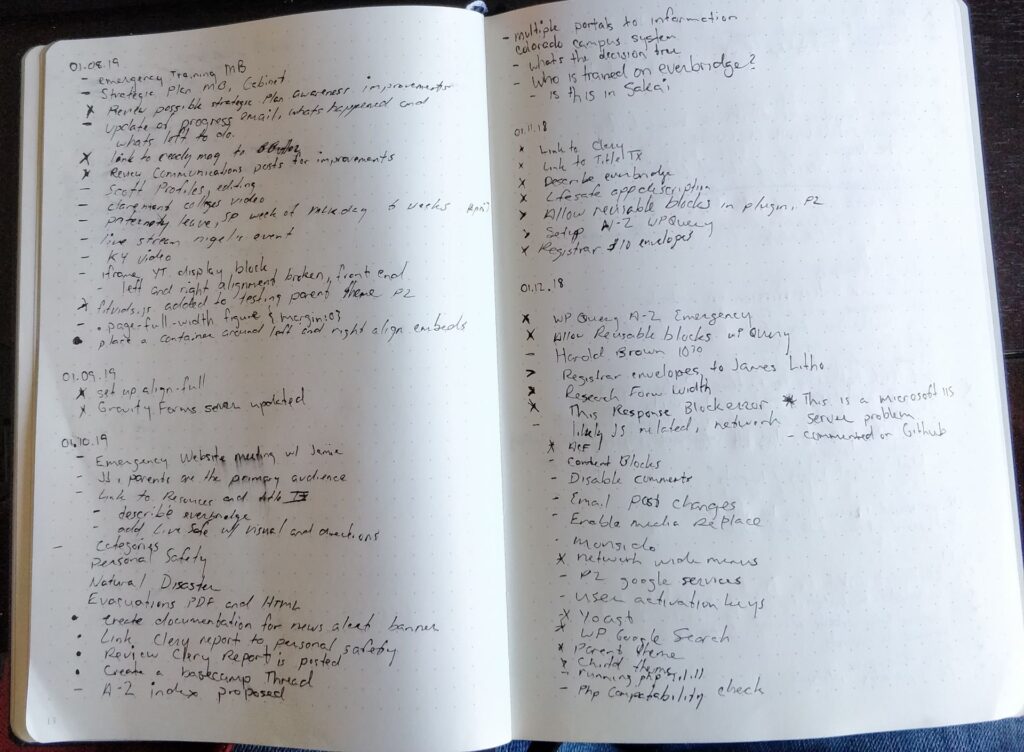 01.08.19
- emergency Training MB
- Strategic Plan MB, Cabinet
x Review possible strategic Plan awareness improvements
- update of progress email, whats happened and
whats left to do.
x link to ready mag to
x Review Communications posts for improvements
- Scott Profiles, editing
- claremont colleges video
- paternity leave, SP week of 6 weeks
- live stream nigels event
- KY video
- iframe, YT display block
- left and right alignment broken, front end
x fitvids.js added to testing parent theme P2
- .page-full-width figure {margin:0}
• place a container around left and right align embeds
01.09.19
x set up align-full
x Gravity Forms server updated
01.10.19
- Emergency Website meeting w/ Jamie
- JJ, parents are the primary audience
- Link to Resources and title IX
- describe everbridge
- add Live Safe w/ visual and directions
- Categories
Personal Safety
Natural Disaster
Evacuations PDF and HTML
• create documentation for news alert banner
• Link Clery report to personal safety
• Review Clery Report is posted
• Create a basecamp Thread
- A-Z index proposed
13
- multiple portals to information
colorado campus system
- whats the decision tree
- Who is trained on everbridge?
- is this in Sakai
01.11.18
x Link to Clery
x Link to Title IX
x Describe everbridge
x Lifesafe app description
> Allow reusable blocks in plugin, P2
> Setup A-Z WPQuery
x Registrar #10 envelopes
01.12.18
x WP Query A-Z Emergency
x Allow Reusable blocks w/ Query
- Harold Brown 1030
> Registrar envelopes to James Litho
> Research Form width
x This Response Block error
- likely JS related, network
* This is a microsoft IIS
server problem
- commented on Github
x ACF
- content Blocks
- Disable comments
- Email post changes
- Enable media Replace
- Monsido
x network wide menus
- P2 google services
- user activation keys
x Yoast
x WP Google Search
x Parent theme
x Child theme
- running php
- Php Compatability check